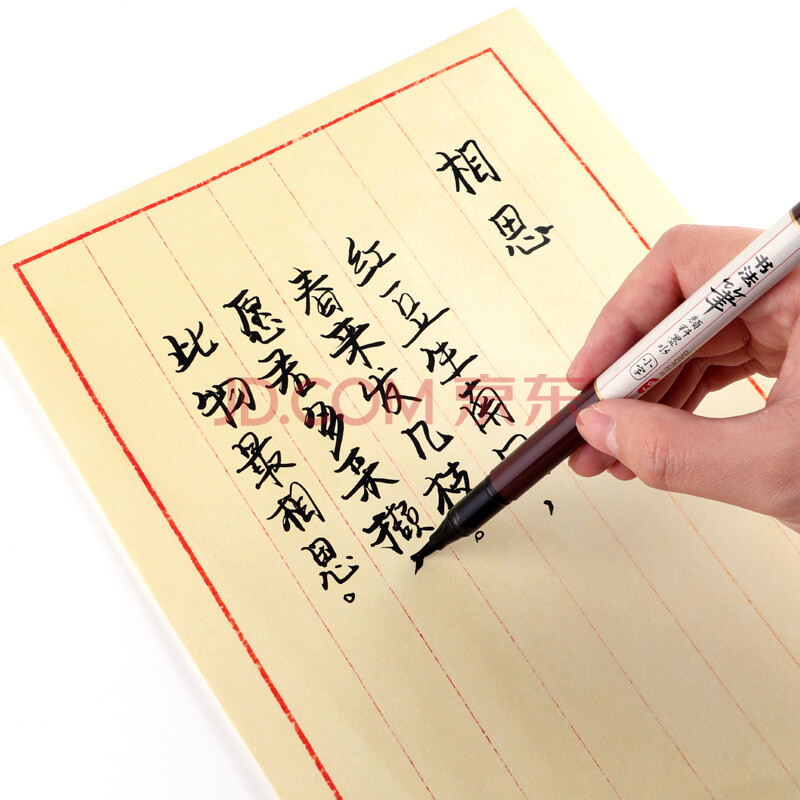 相思
红豆生南
春来发几枝。
愿君多采撷
此物最相思。
书法笔
颜料墨水
小字
JD.COM 京东